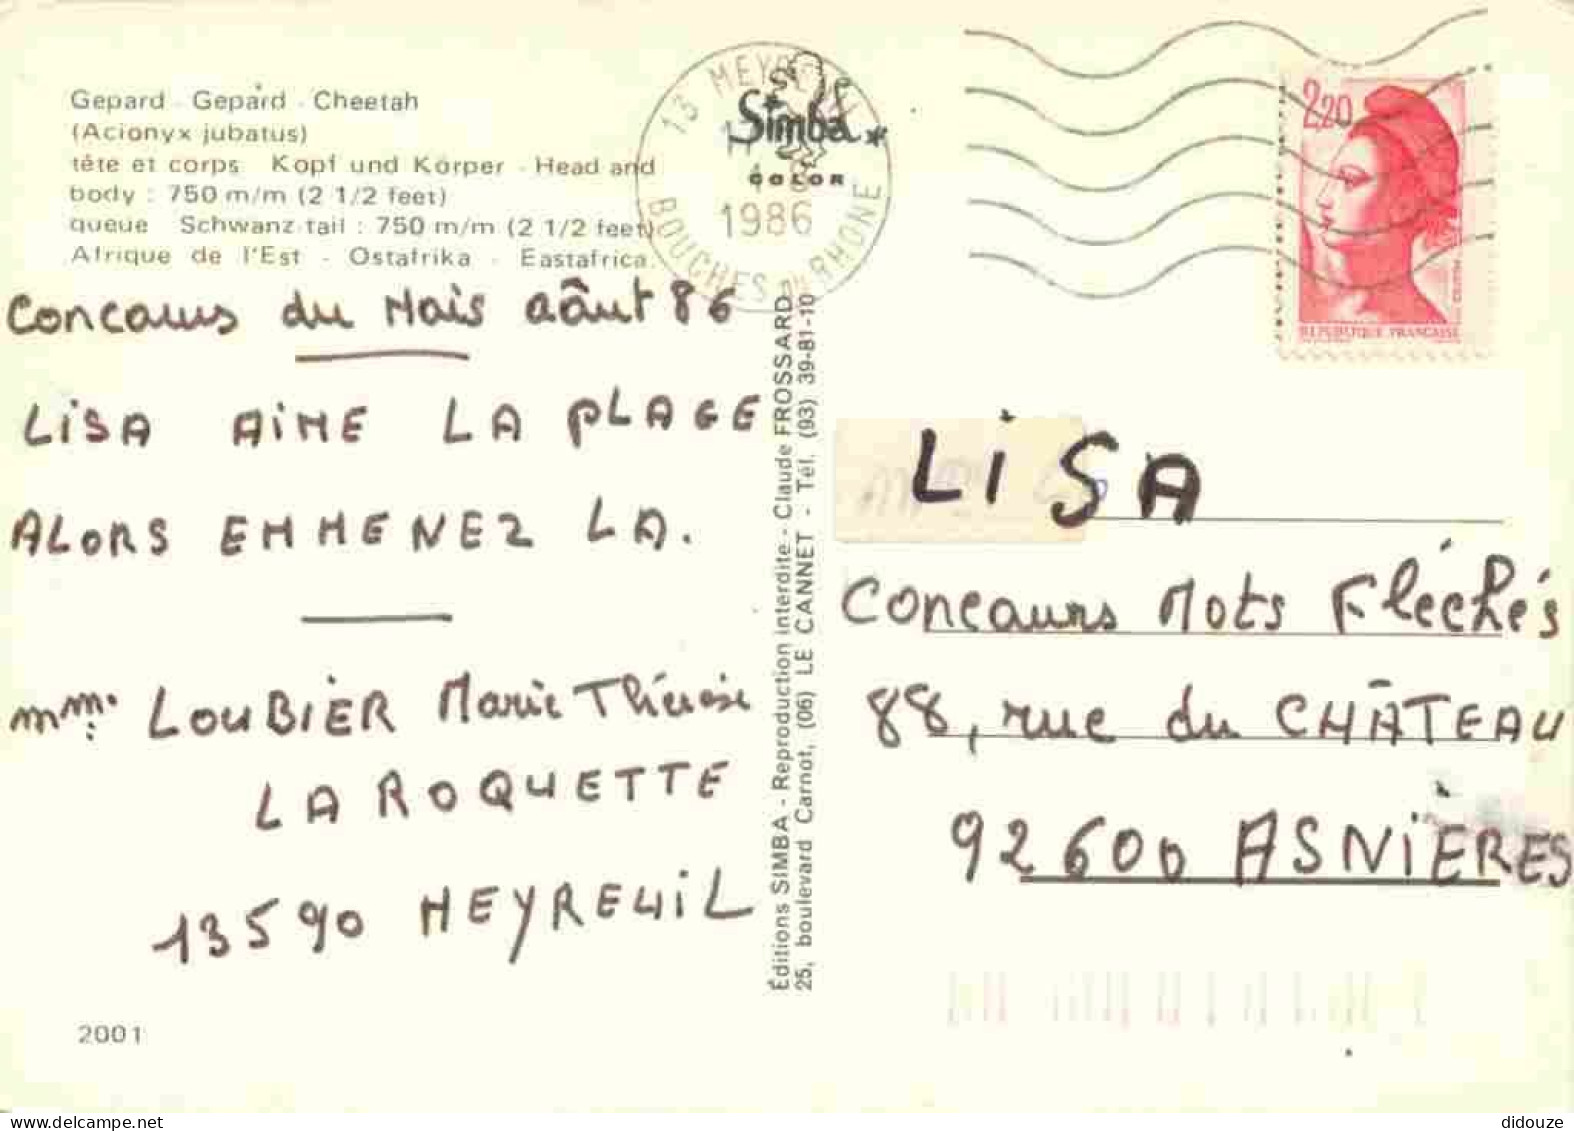 Gepard - Gepard - Cheetah
(Acionyx jubatus)
tête et corps Kopf und Körper - Head and
body : 750 m/m (2 1/2 feet)
queue Schwanz tail : 750 m/m (2 1/2 feet)
Afrique de l'Est - Ostafrika - Eastafrica
Concours du Mois aôut 86
LISA AIME LA PLAGE
ALORS EMMENEZ LA.
Mme LOUBIER Marie Thérèse
LA ROQUETTE
13590 MEYREUIL
2001
Simba
COLOR
13 MEYREUIL
1986
BOUCHES DU RHONE
Éditions SIMBA - Reproduction interdite - Claude FROSSARD
25, boulevard Carnot, (06) LE CANNET - Tél. (93) 39-81-10
2,20
REPUBLIQUE FRANÇAISE
LISA
Concours Mots Fléchés
88, rue du CHÂTEAU
92600 ASNIÈRES
didouze